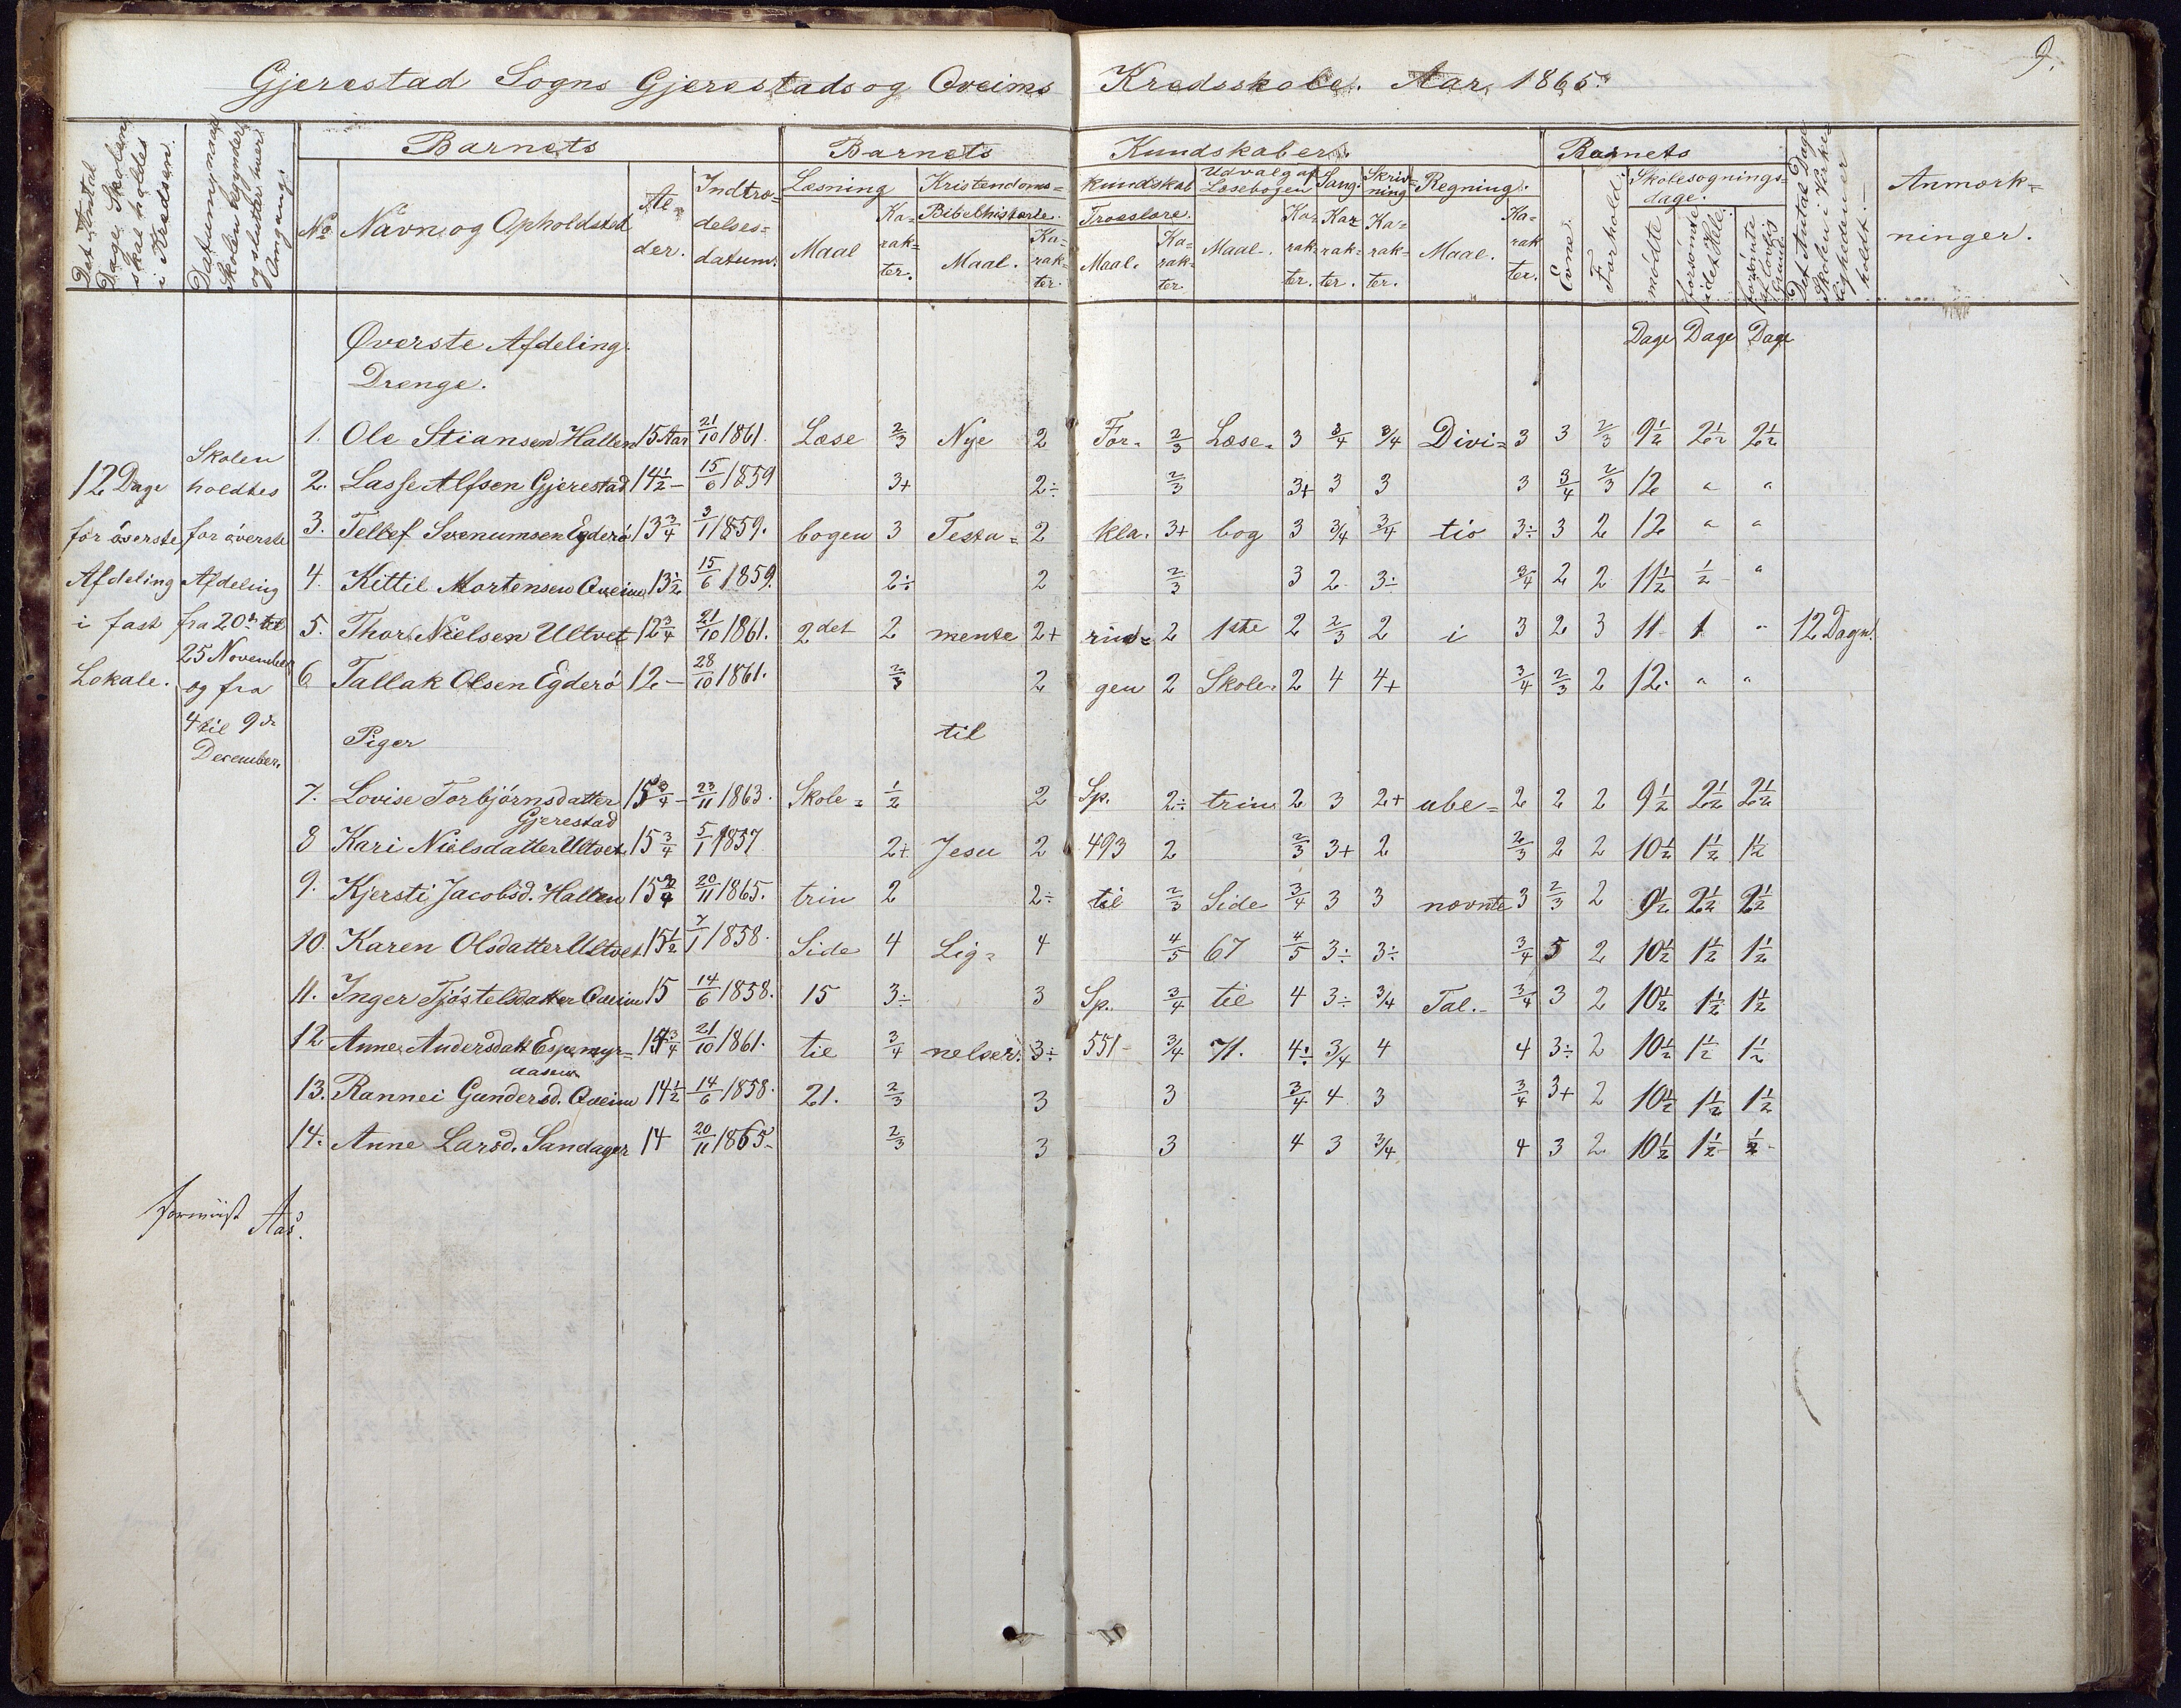 9.
Gjerestad Sogns Gjerestads og Qveims Kredsskole. Aar 1865.
Det Antal Dage, Skolen skal holdes i Kredsen.
Datum, naar Skolen begynder og slutter hver Omgang.
Barnets
No. Navn og Opholdsted. Al-der. Indtræ-delses-datum.
Barnets Kundskaber.
Læsning Maal Karak-ter.
Kristendoms-kundskab
Bibelhistorie. Maal. Ka-rak-ter.
Troeslære. Maal. Ka-rak-ter.
Udvalg af Læsebogen Maal. Ka-rak-ter.
Sang. Kar-rak-ter.
Skriv-ning Ka-rak-ter.
Regning. Maal. Ka-rak-ter.
Barnets
Evne. Forhold.
Skolesøgnings-dage.
mødte forsømte i det Hele. forsømte af lovlig Grund.
Det Antal Dage Skolen i Virke-ligheden er holdt.
Anmærk-ninger.
Øverste Afdeling. Dage Dage Dage
Drenge.
12 Dage for øverste Afdeling i fast Lokale.
Skolen holdtes for øverste Afdeling fra 20de til 25 November og fra 4 til 9de December.
1. Ole Stiansen Hallen 15 Aar 21/10 1861. Læse 2/3 Nye 2 For- 2/3 Læse- 3 3/4 3/4 Divi- 3 3 2/3 9 1/2 2 1/2 2 1/2
2. Lasse Alfsen Gjerestad 14 1/2 - 15/6 1859 3+ 2÷ 2/3 3+ 3 3 3 3/4 2/3 12 " "
3. Tellef Svenumsen Egderø 13 3/4 3/1 1859. bogen 3 Testa- 2 kla- 3+ bog 3 3/4 3/4 tio 3÷ 3 2 12 " "
4. Kittil Mortensen Qveim 13 1/2 15/6 1859. 2÷ 2 2/3 3 2 3÷ 3/4 2 2 11 1/2 1/2 "
5. Thor Nielsen Ultvet 12 3/4 21/10 1861. 2det 2 mente 2+ rin- 2 1ste 2 2/3 2 i 3 2 3 11 1 " 12 Dage.
6 Tallak Olsen Egderø 12 - 28/10 1861. 2/3 2 gen 2 Skole- 2 4 4+ 3/4 2/3 2 12. " "
Piger til
7. Lovise Torbjørnsdatter Gjerestad 15 3/4 - 23/11 1863. Skole- 1/2 2 Sp. 2÷ trin 2 3 2+ ube- 2 2 2 9 1/2 2 1/2 2 1/2
8 Kari Nielsdatter Ultvet 15 3/4 5/1 1857 2+ Jesu 2 493 2 2/3 3+ 2 2/3 2 2 10 1/2 1 1/2 1 1/2
9. Kjersti Jacobsd. Hallen 15 3/4 20/11 1865. trin 2 2÷ til 2/3 Side 3/4 3 3 nævnte 3 2/3 2 9 1/2 2 1/2 2 1/2
10. Karen Olsdatter Ultvet 15 1/2 7/1 1858. Side 4 Lig- 4 4/5 67 4/5 3÷ 3÷ 3/4 5 2 10 1/2 1 1/2 1 1/2
11. Inger Tjøstelsdatter Qveim 15 14/6 1858. 15 3÷ 3 Sp. 3/4 til 4 3÷ 3/4 Tal.- 3/4 3 2 10 1/2 1 1/2 1 1/2
12 Anne Andersdatt Espemyr-aasen 14 3/4 21/10 1861. til 3/4 nelser. 3÷ 551- 3/4 71. 4÷ 3/4 4 4 3÷ 2 10 1/2 1 1/2 1 1/2
13. Rannei Gundersd. Qveim 14 1/2 14/6 1858. 21. 2/3 3 3 3/4 4 3 3/4 3+ 2 10 1/2 1 1/2 1 1/2
14. Anne Larsd. Sandager 14 20/11 1865. 2/3 3 3 4 3 3/4 4 3 2 10 1/2 1 1/2 1/2
Aas.